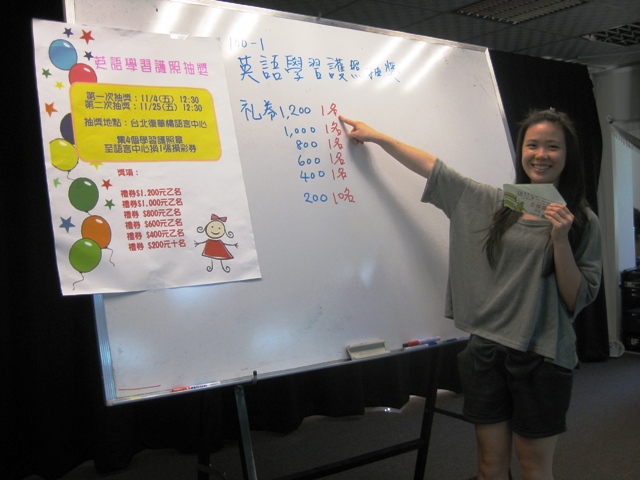 英語學習護照抽獎
第一次抽獎：11/4(五) 12:30
第二次抽獎：11/25(五) 12:30
集4個學習護照章
至語言中心換1張摸彩券
獎項：
禮券$1,200元乙名
禮券$1,000元乙名
禮券$800元乙名
禮券$600元乙名
禮券$400元乙名
禮券$200元十名
100-1
英語學習護照抽獎
礼券1,200 1名
1,000 1名
800 1名
600 1名
400 1名
200 10名